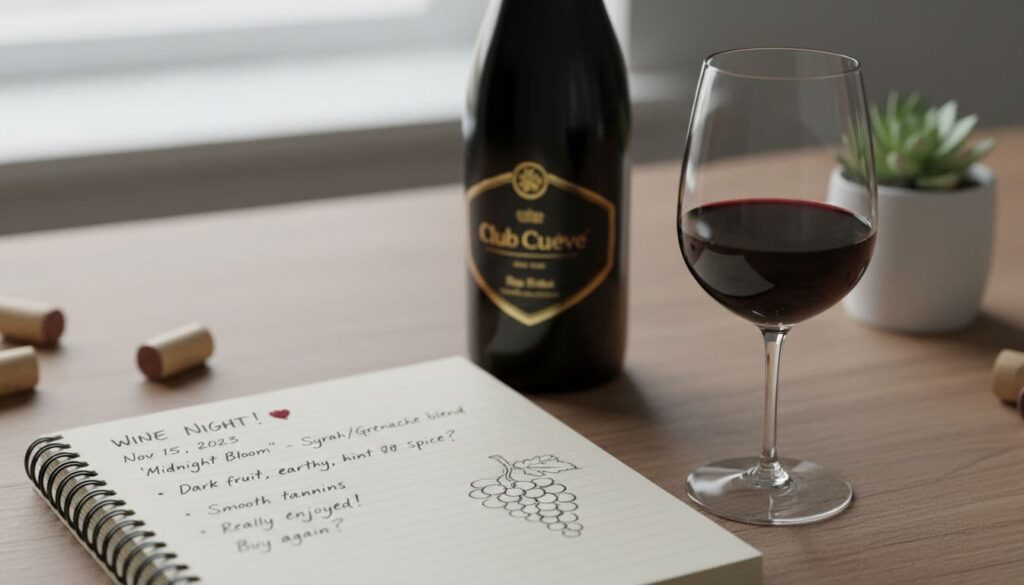 Club Cuevé
WINE NIGHT! ❤
Nov 15, 2023
"Midnight Bloom" - Syrah/Grenache blend
• Dark fruit, earthy, hint spice?
• Smooth tannins
• Really enjoyed!
Buy again?